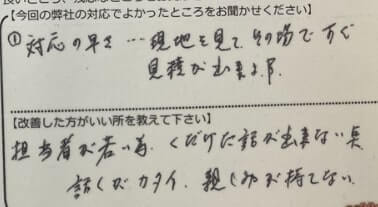 【今回の弊社の対応でよかったところをお聞かせください】
① 対応の早さ…現地を見て、その場ですぐ
見積が出来よう。
【改善した方がいい所を教えて下さい】
担当者が若い為、くだけた話が出来ない点
話し方がカタイ、親しみが持てない。